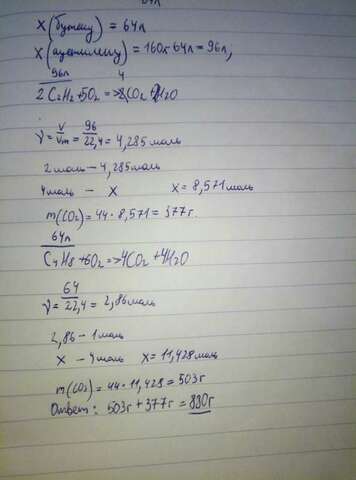 X(бутену) = 64л
X(ацетилену) = 160л-64л = 96л,
96л 4
2C₂H₂+5O₂=>4CO₂+2H₂O
ν=V/Vm=96/22,4=4,285моль
2моль-4,285моль
4моль - X X=8,571моль
m(CO₂)=44·8,571=377г.
64л
C₄H₈+6O₂=>4CO₂+4H₂O
ν=64/22,4=2,86моль
2,86-1моль
X -4моль X=11,428моль
m(CO₂)=44·11,428=503г
Ответ: 503г+377г=880г